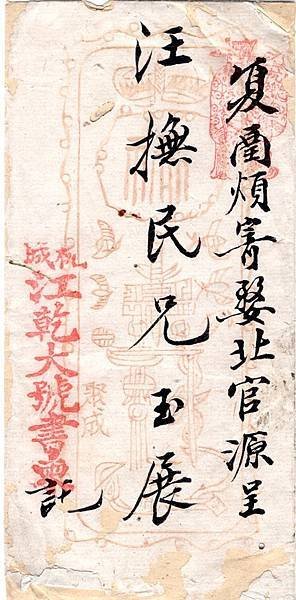 复函煩寄婺北官源呈
汪撫民兄玉展
杭城
江乾大號書柬
託
聚成